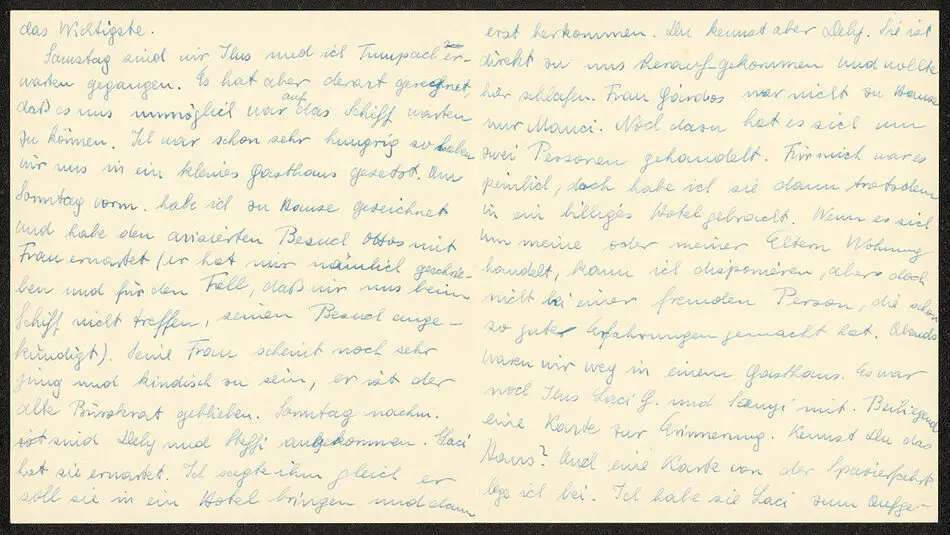 das Wichtigste.
Samstag sind wir Ilus und ich Tumpach er-
warten gegangen. Es hat aber derart geregnet,
daß es uns unmöglich war auf das Schiff warten
zu können. Ich war schon sehr hungrig so haben
wir uns in ein kleines Gasthaus gesetzt. Am
Sonntag vorm. habe ich zu Hause gezeichnet
und habe den avisierten Besuch Ottos mit
Frau erwartet (er hat mir nämlich geschrie-
ben und für den Fall, daß wir uns beim
Schiff nicht treffen, seinen Besuch ange-
kündigt). Seine Frau scheint noch sehr
jung und kindisch zu sein, er ist der
alte Bürokrat geblieben. Sonntag nachm.
sind Dely und Steffi angekommen. Laci
hat sie erwartet. Ich sagte ihm gleich er
soll sie in ein Hotel bringen und dann
erst herkommen. Du kennst aber Dely. Sie ist
direkt zu uns herauf gekommen und wollte
hier schlafen. Frau Gárdos war nicht zu Hause
nur Manci. Noch dazu hat es sich um
zwei Personen gehandelt. Für mich war es
peinlich, doch habe ich sie dann trotzdem
in ein billiges Hotel gebracht. Wenn es sich
um meine oder meiner Eltern Wohnung
handelt, kann ich disponieren, aber doch
nicht bei einer fremden Person, die schon
so gute Erfahrungen gemacht hat. Abends
waren wir weg in einem Gasthaus. Es war
noch Ilus Laci G. und mit. Beiliegend
eine Karte zur Erinnerung. Kennst Du das
Haus? Und eine Karte von der Spazierfahrt
lege ich bei. Ich habe sie Laci zum Aufge-